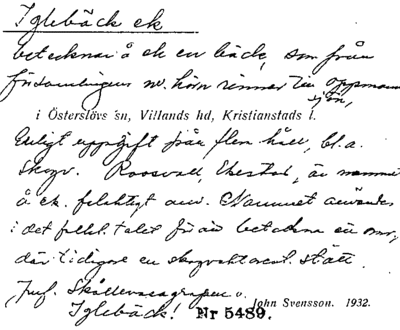 Iglebäck ek
betecknar å ek en bäck, som från
församlingens nv. hörn rinner till Oppmanna
sjön,
i Österslövs sn, Villands hd, Kristianstads l.
Enligt uppgift från flera håll, bl.a.
Skogv. Roosvall, Ekestad, är namnet
å ek. felaktigt anv. Namnet användes
i det folkl. talet för att betekna en
där tidigare en skogvaktarest. stått.
Jmf. Skållerasagrafen o.
Iglebäck!
John Svensson. 1932.
Nr 5489.